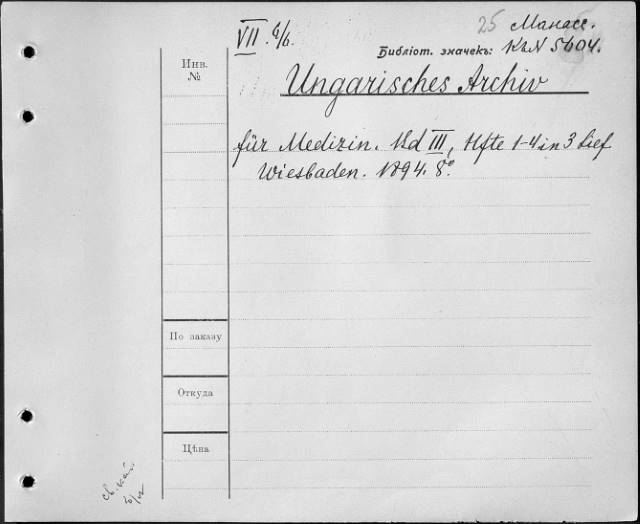 VII. б/б.
25 Манасс.
Библіот. значекъ: К№ 5604.
Инв.
№
Ungarisches Archiv
für Medizin. Bd III, Hfte 1-4 in 3 Lief
Wiesbaden. 1894. 8°.
По заказу
Откуда
Цѣна